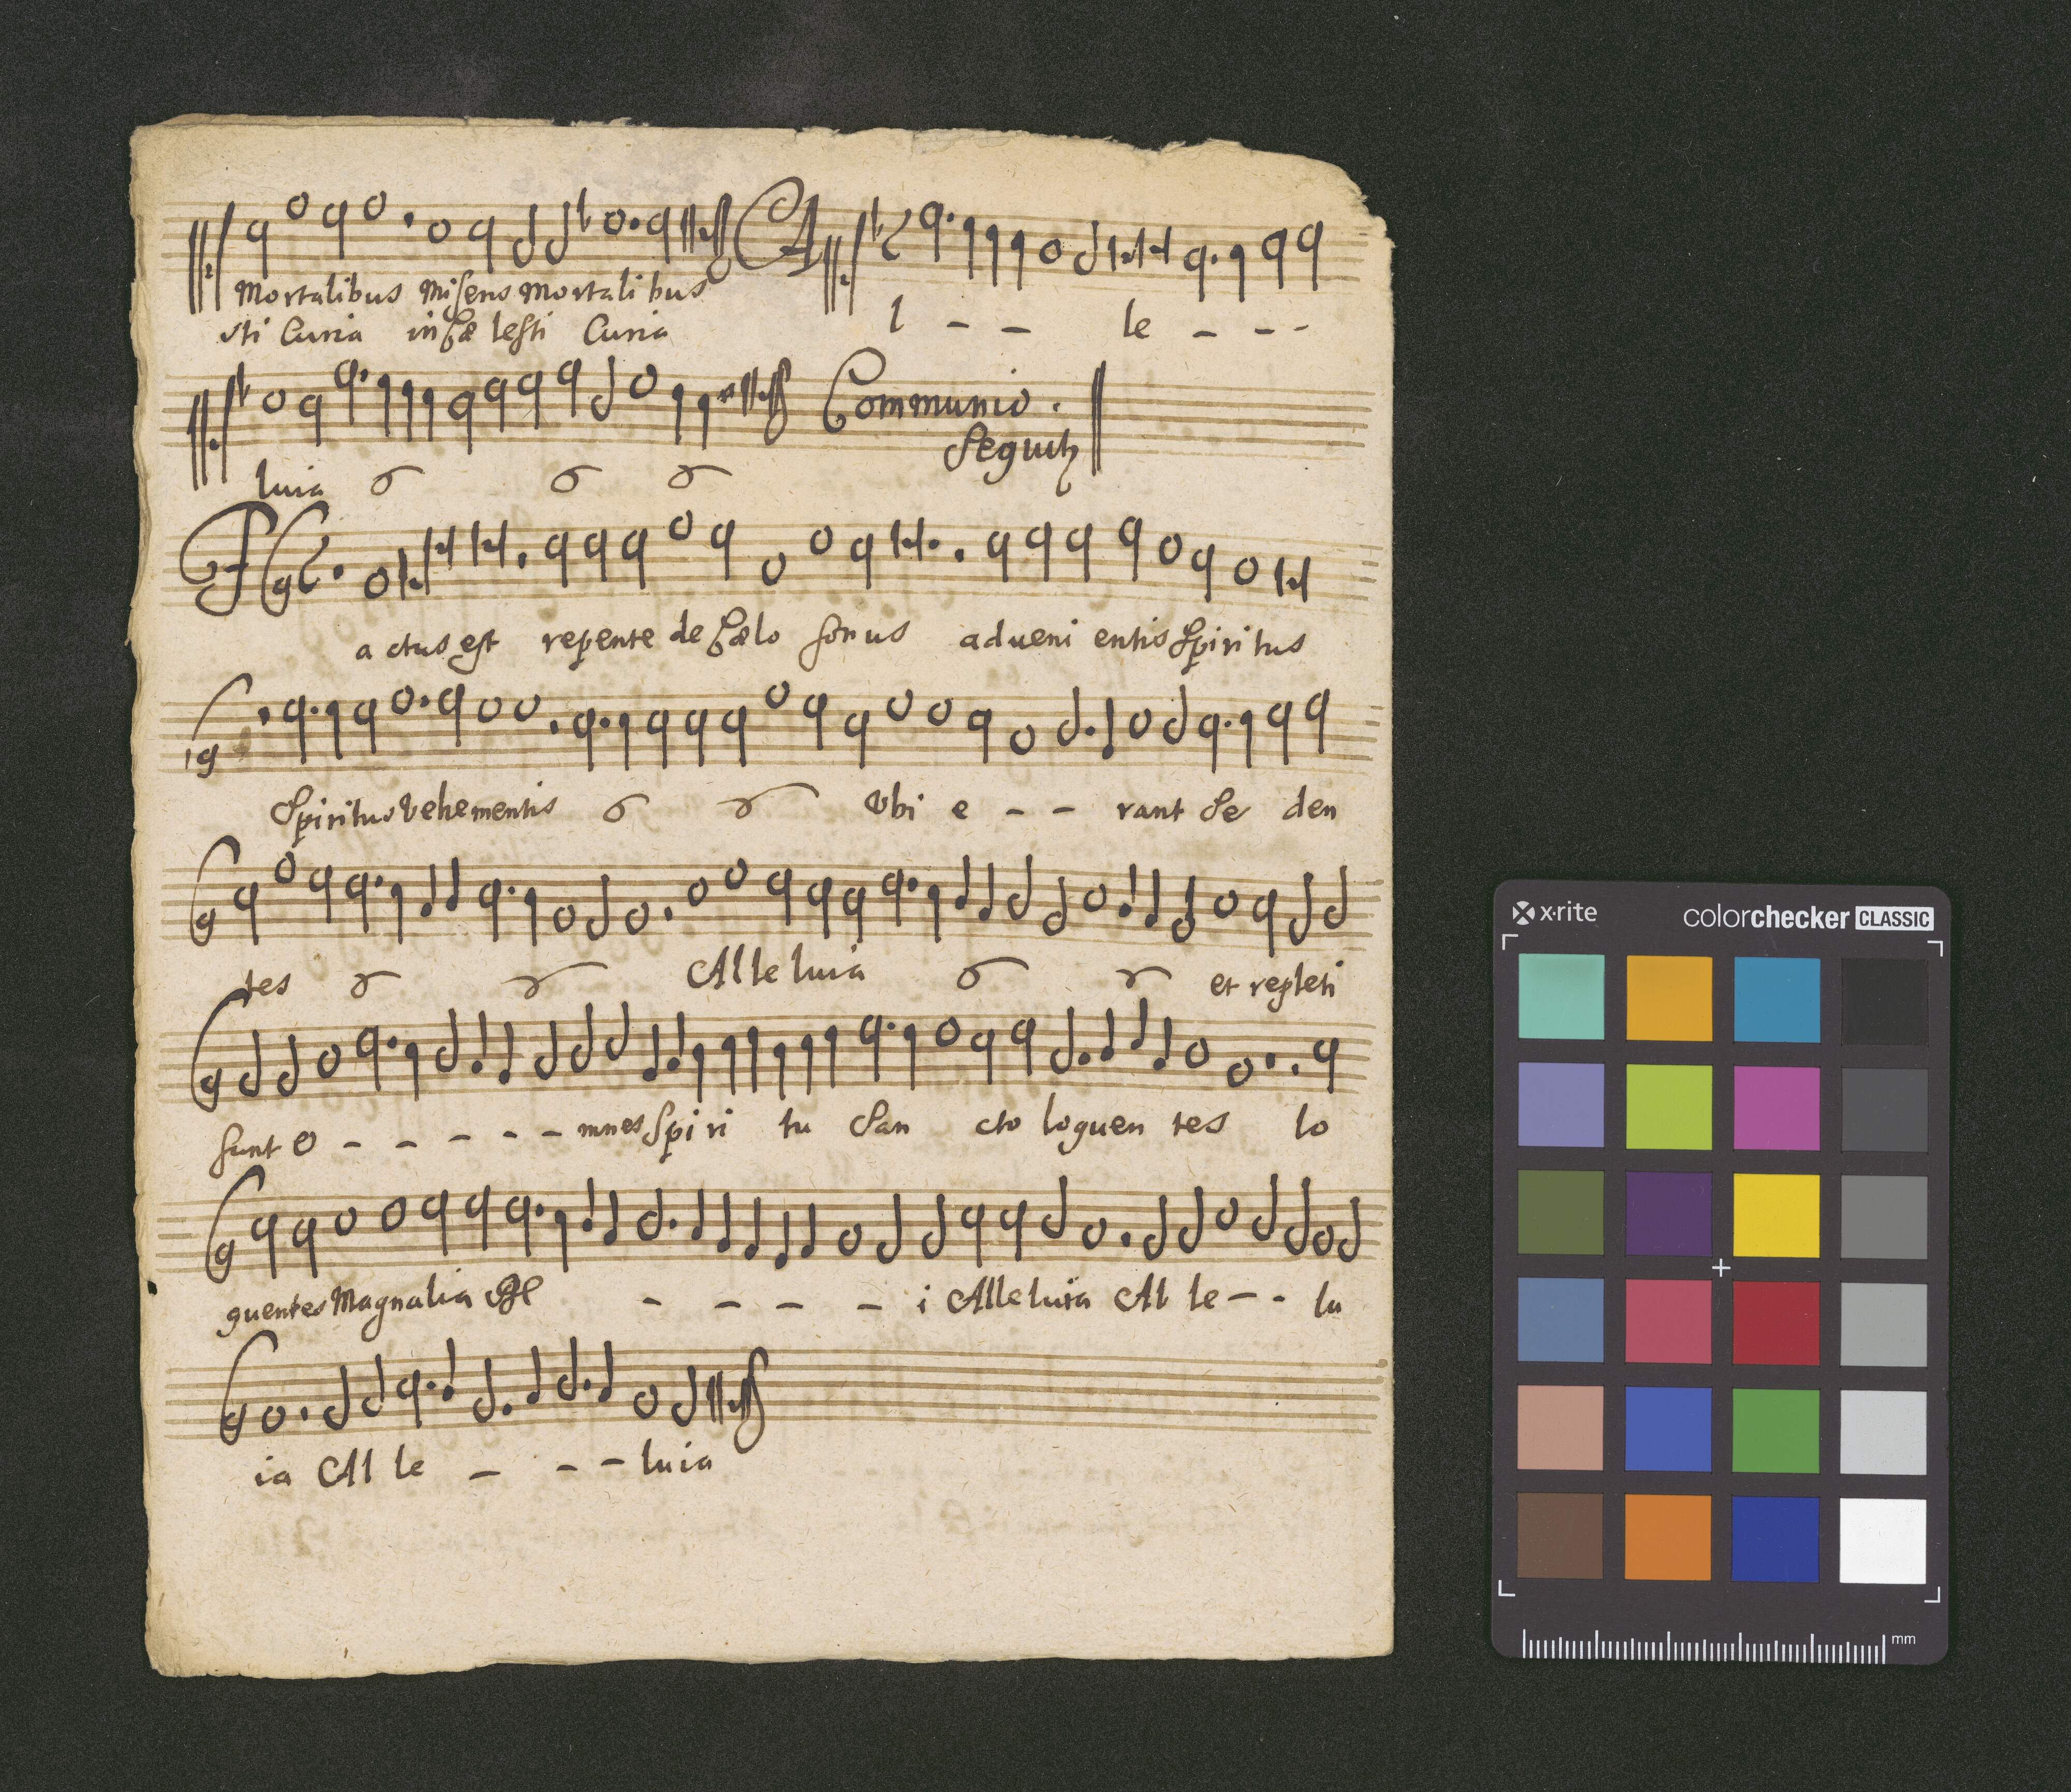 Mortalibus Misero Mortali bus
sti Curia in Cæ lesti Curia
A l - - le - - -
luia
Communio.
Sequit
F a ctus est repente de Cælo sonus adueni entis Spiri tus
Spiritus Vehementis Vbi e - - rant Se den
tes Alle luia et repleti
sunt o - - - - - mnes Spi ri tu San cto loquen tes lo
quentes Magnalia - - - - i Alleluia Al le - - lu
ia Al le - - - luia
x·rite
colorchecker CLASSIC
mm